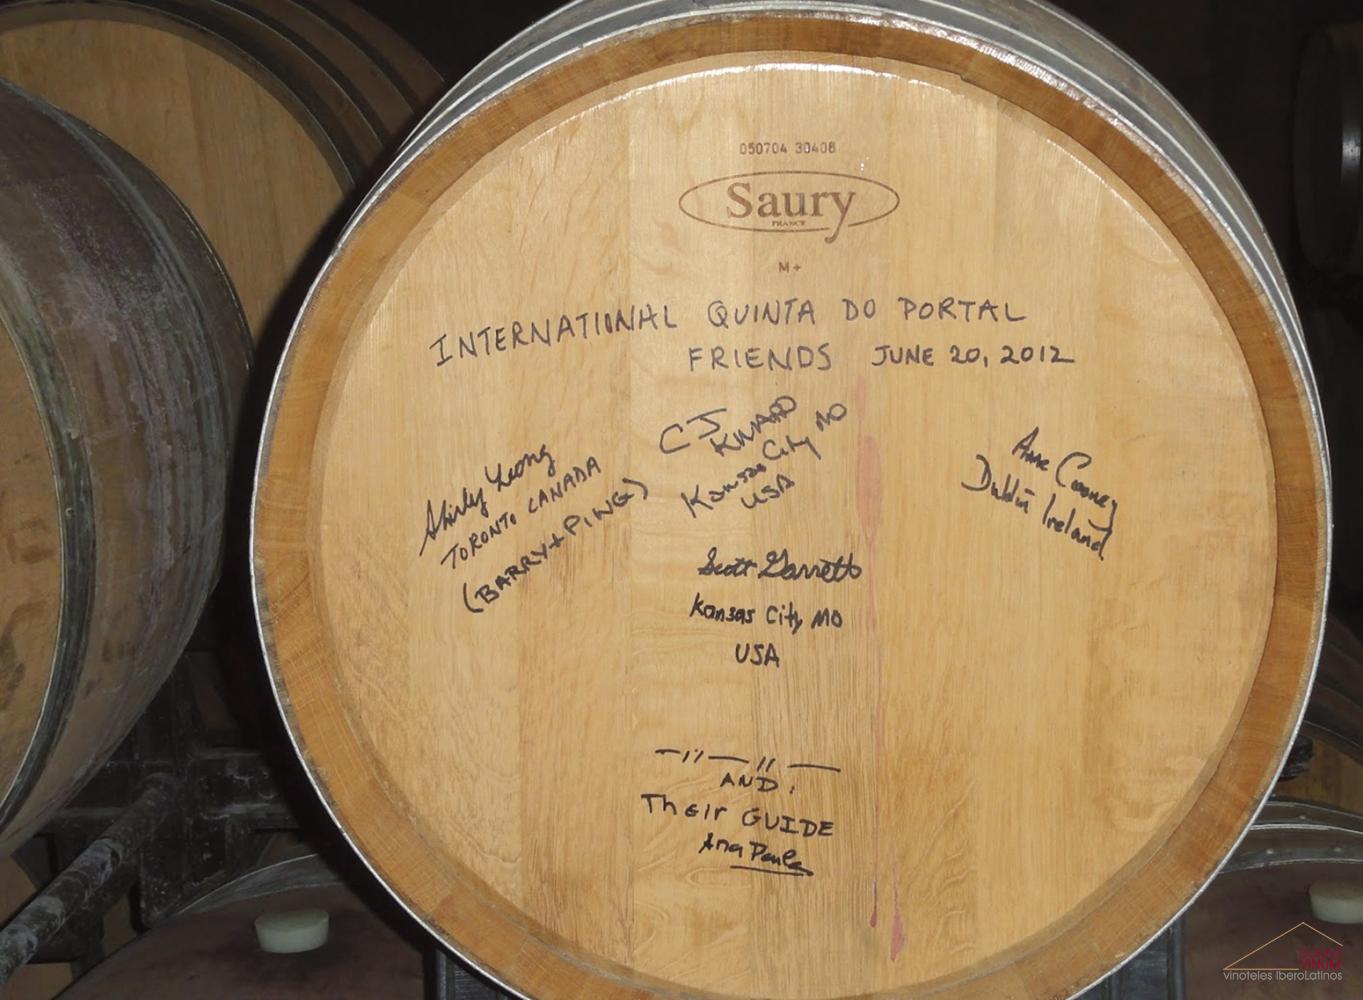 050704 30408
Saury
FRANCE
M+
INTERNATIIONAL QUINTA DO PORTAL
FRIENDS JUNE 20, 2012
Shirley Leong
TORONTO CANADA
(BARRY + PING)
CJ
Kansas City MO
USA
Scott Garrett
Kansas City MO
USA
Anne Cooney
Dublin Ireland
AND:
Their GUIDE
Ana Paula
vinoteles IberoLatinos